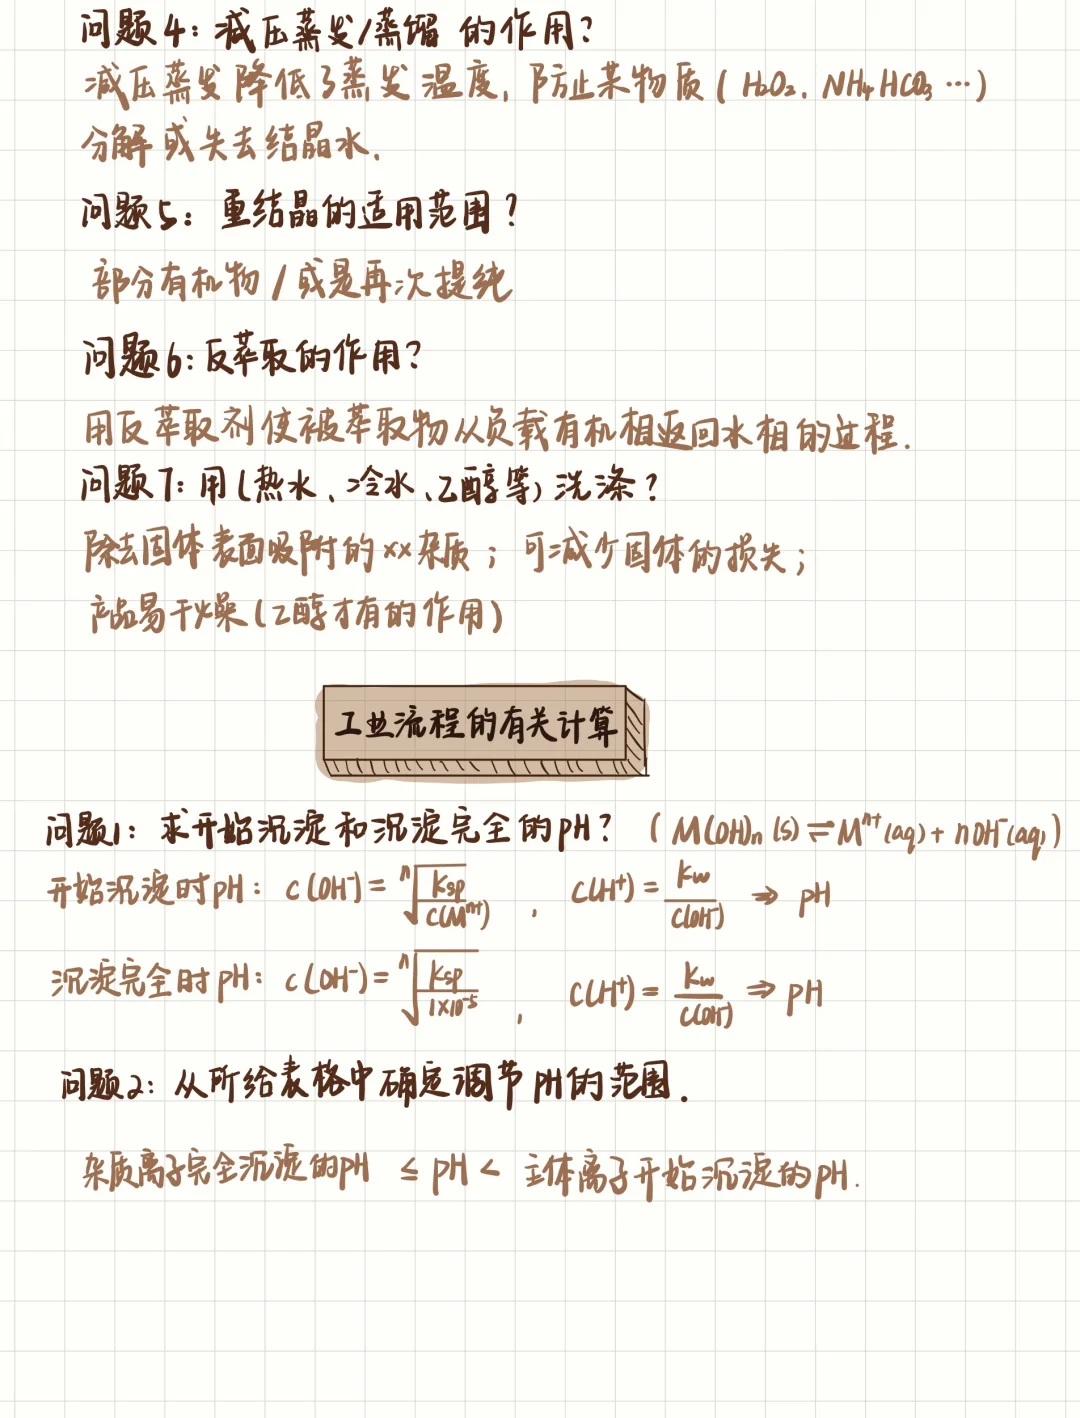 问题4: 减压蒸发/蒸馏 的作用?
减压蒸发降低了蒸发温度, 防止某物质 ( H₂O₂、NH₄HCO₃ … )
分解或失去结晶水.
问题5: 重结晶的适用范围?
部分有机物 / 或是再次提纯
问题6: 反萃取的作用?
用反萃取剂使被萃取物从负载有机相返回水相的过程.
问题7: 用(热水、冷水、乙醇等)洗涤?
除去固体表面吸附的xx杂质; 可减少固体的损失;
产品易干燥(乙醇才有的作用)
工业流程的有关计算
问题1: 求开始沉淀和沉淀完全的pH? ( M(OH)n (s) ⇌ Mⁿ⁺(aq) + nOH⁻(aq) )
开始沉淀时pH: c(OH⁻) = ⁿ√(Ksp/c(Mⁿ⁺)) , c(H⁺) = Kw/c(OH⁻) ⇒ pH
沉淀完全时pH: c(OH⁻) = ⁿ√(Ksp/1×10⁻⁵) , c(H⁺) = Kw/c(OH⁻) ⇒ pH
问题2: 从所给表格中确定调节pH的范围.
杂质离子完全沉淀的pH ≤ pH < 主体离子开始沉淀的pH.